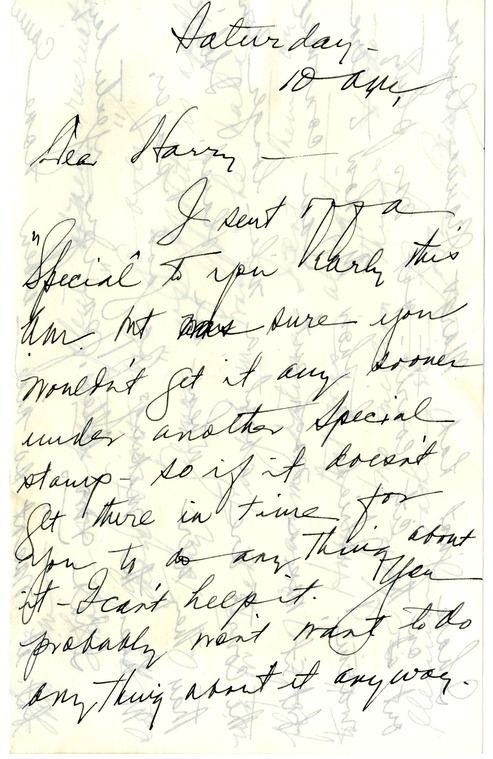 Saturday -
10 am,
Dear Harry —
I sent off a
"Special" to you early this
am. but was sure you
wouldn't get it any sooner
under another special
stamp - so if it doesn't
get there in time for
you to do any thing about
it - I can't help it. You
probably won't want to do
anything about it anyway.